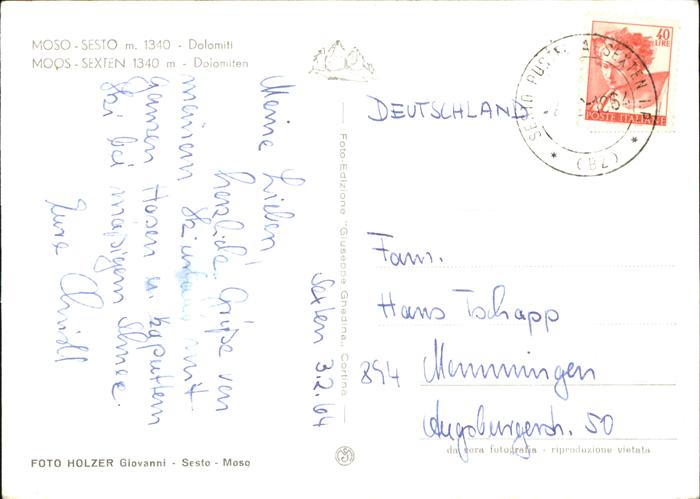 MOSO - SESTO m. 1340 - Dolomiti
MOOS - SEXTEN 1340 m - Dolomiten
Meine Lieben!
herzliche Grüße von
meinem Skiurlaub mit
ganzen Hosen u. kaputtem
Ski bei mäßigem Schnee.
Eure
Sexten 3.2.64
Foto-Edizione "Giuseppe Ghedina" Cortina
40
LIRE
POSTE ITALIANE
SESTO PUSTERIA SEXTEN
* (BZ) *
DEUTSCHLAND
Fam.
Hans Tschapp
894 Memmingen
Augsburgerstr. 50
da vera fotografia - riproduzione vietata
FOTO HOLZER Giovanni - Sesto - Moso